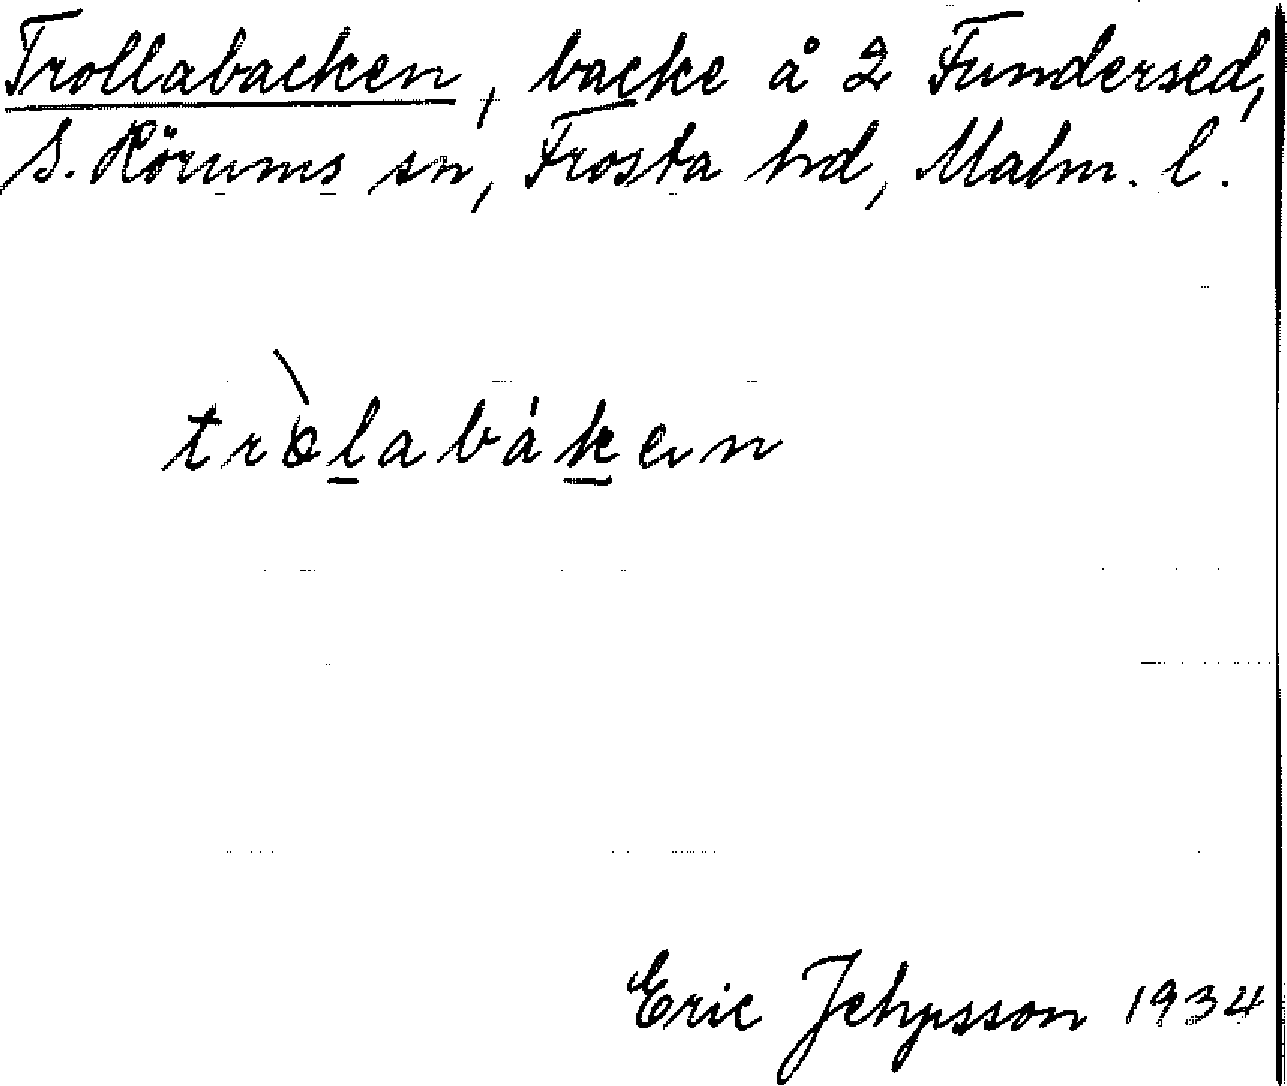 Trollabacken, backe å 2 Fundersed,
S. Rörums sn, Frosta hd, Malm. l.
tròlabáken
Eric Jehpsson 1934